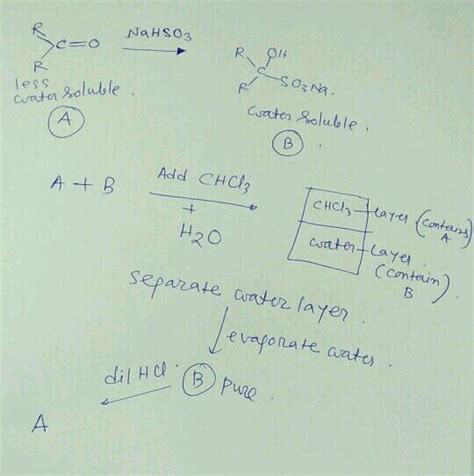 R
C=O
R
NaHSO3
R OH
C
R SO3Na.
less
water soluble.
A
water soluble.
B
A + B
Add CHCl3
+
H2O
CHCl3 layer (contains
A
water layer
(contain
B
separate water layer.
evaporate water.
dil HCl. B pure.
A